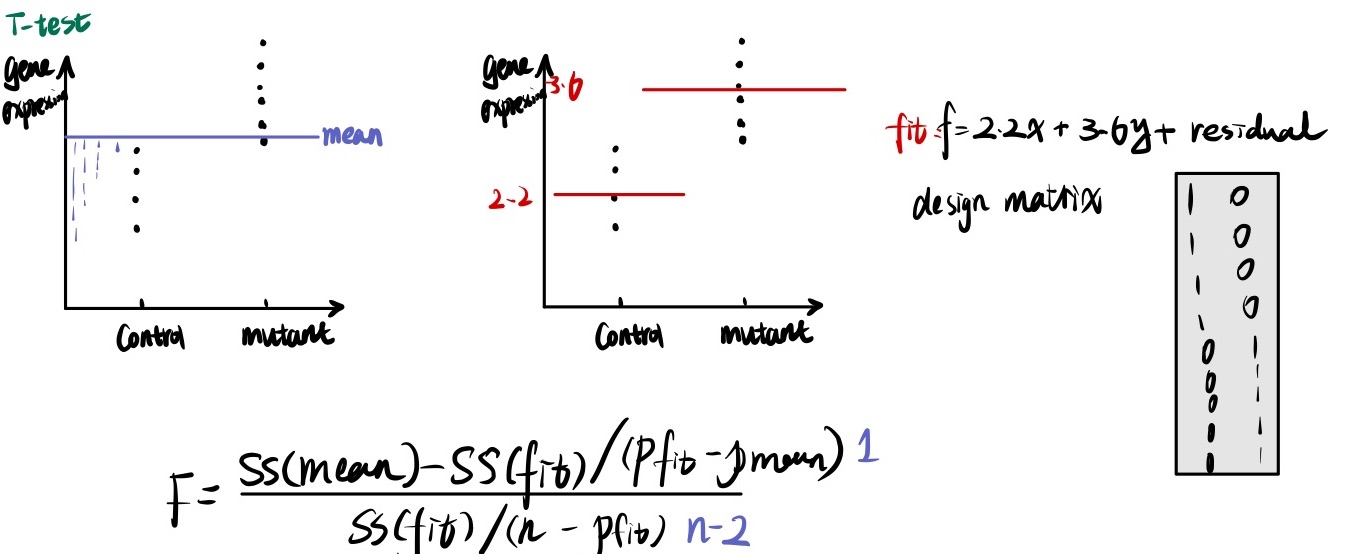 T-test
gene expression
mean
Control mutant
gene expression
3.6
2.2
Control mutant
fit: f = 2.2x + 3.6y + residual
design matrix
1 0
1 0
1 0
1 0
0 1
0 1
0 1
0 1
0 1
F = SS(mean) - SS(fit) / (Pfit - Pmean) 1
SS(fit) / (n - Pfit) n-2